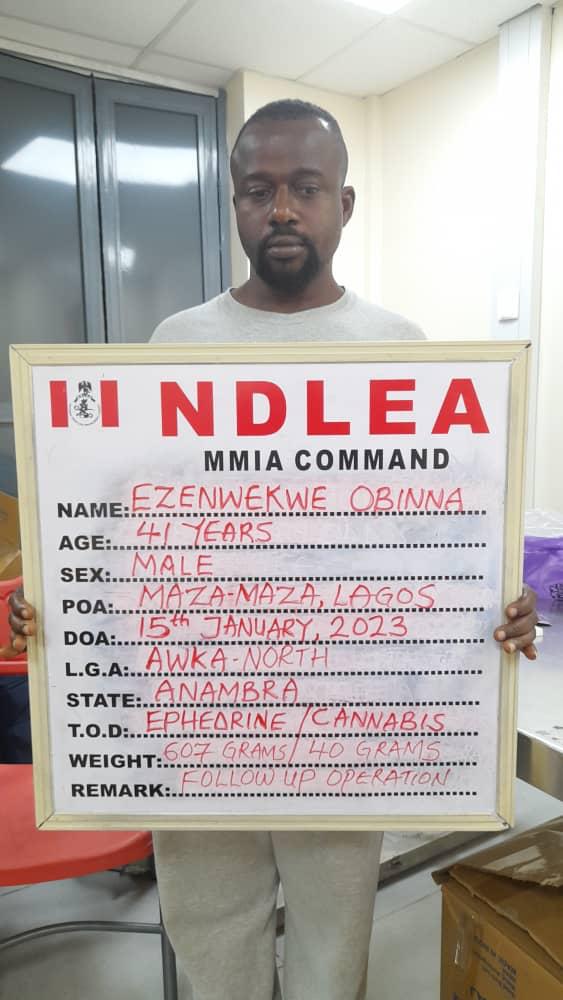 NDLEA
MMIA COMMAND
NAME: EZENWEKWE OBINNA
AGE: 41 YEARS
SEX: MALE
POA: MAZA-MAZA, LAGOS
DOA: 15th JANUARY, 2023
L.G.A: AWKA-NORTH
STATE: ANAMBRA
T.O.D: EPHEDRINE / CANNABIS
WEIGHT: 607 GRAMS / 40 GRAMS
REMARK: FOLLOW UP OPERATION